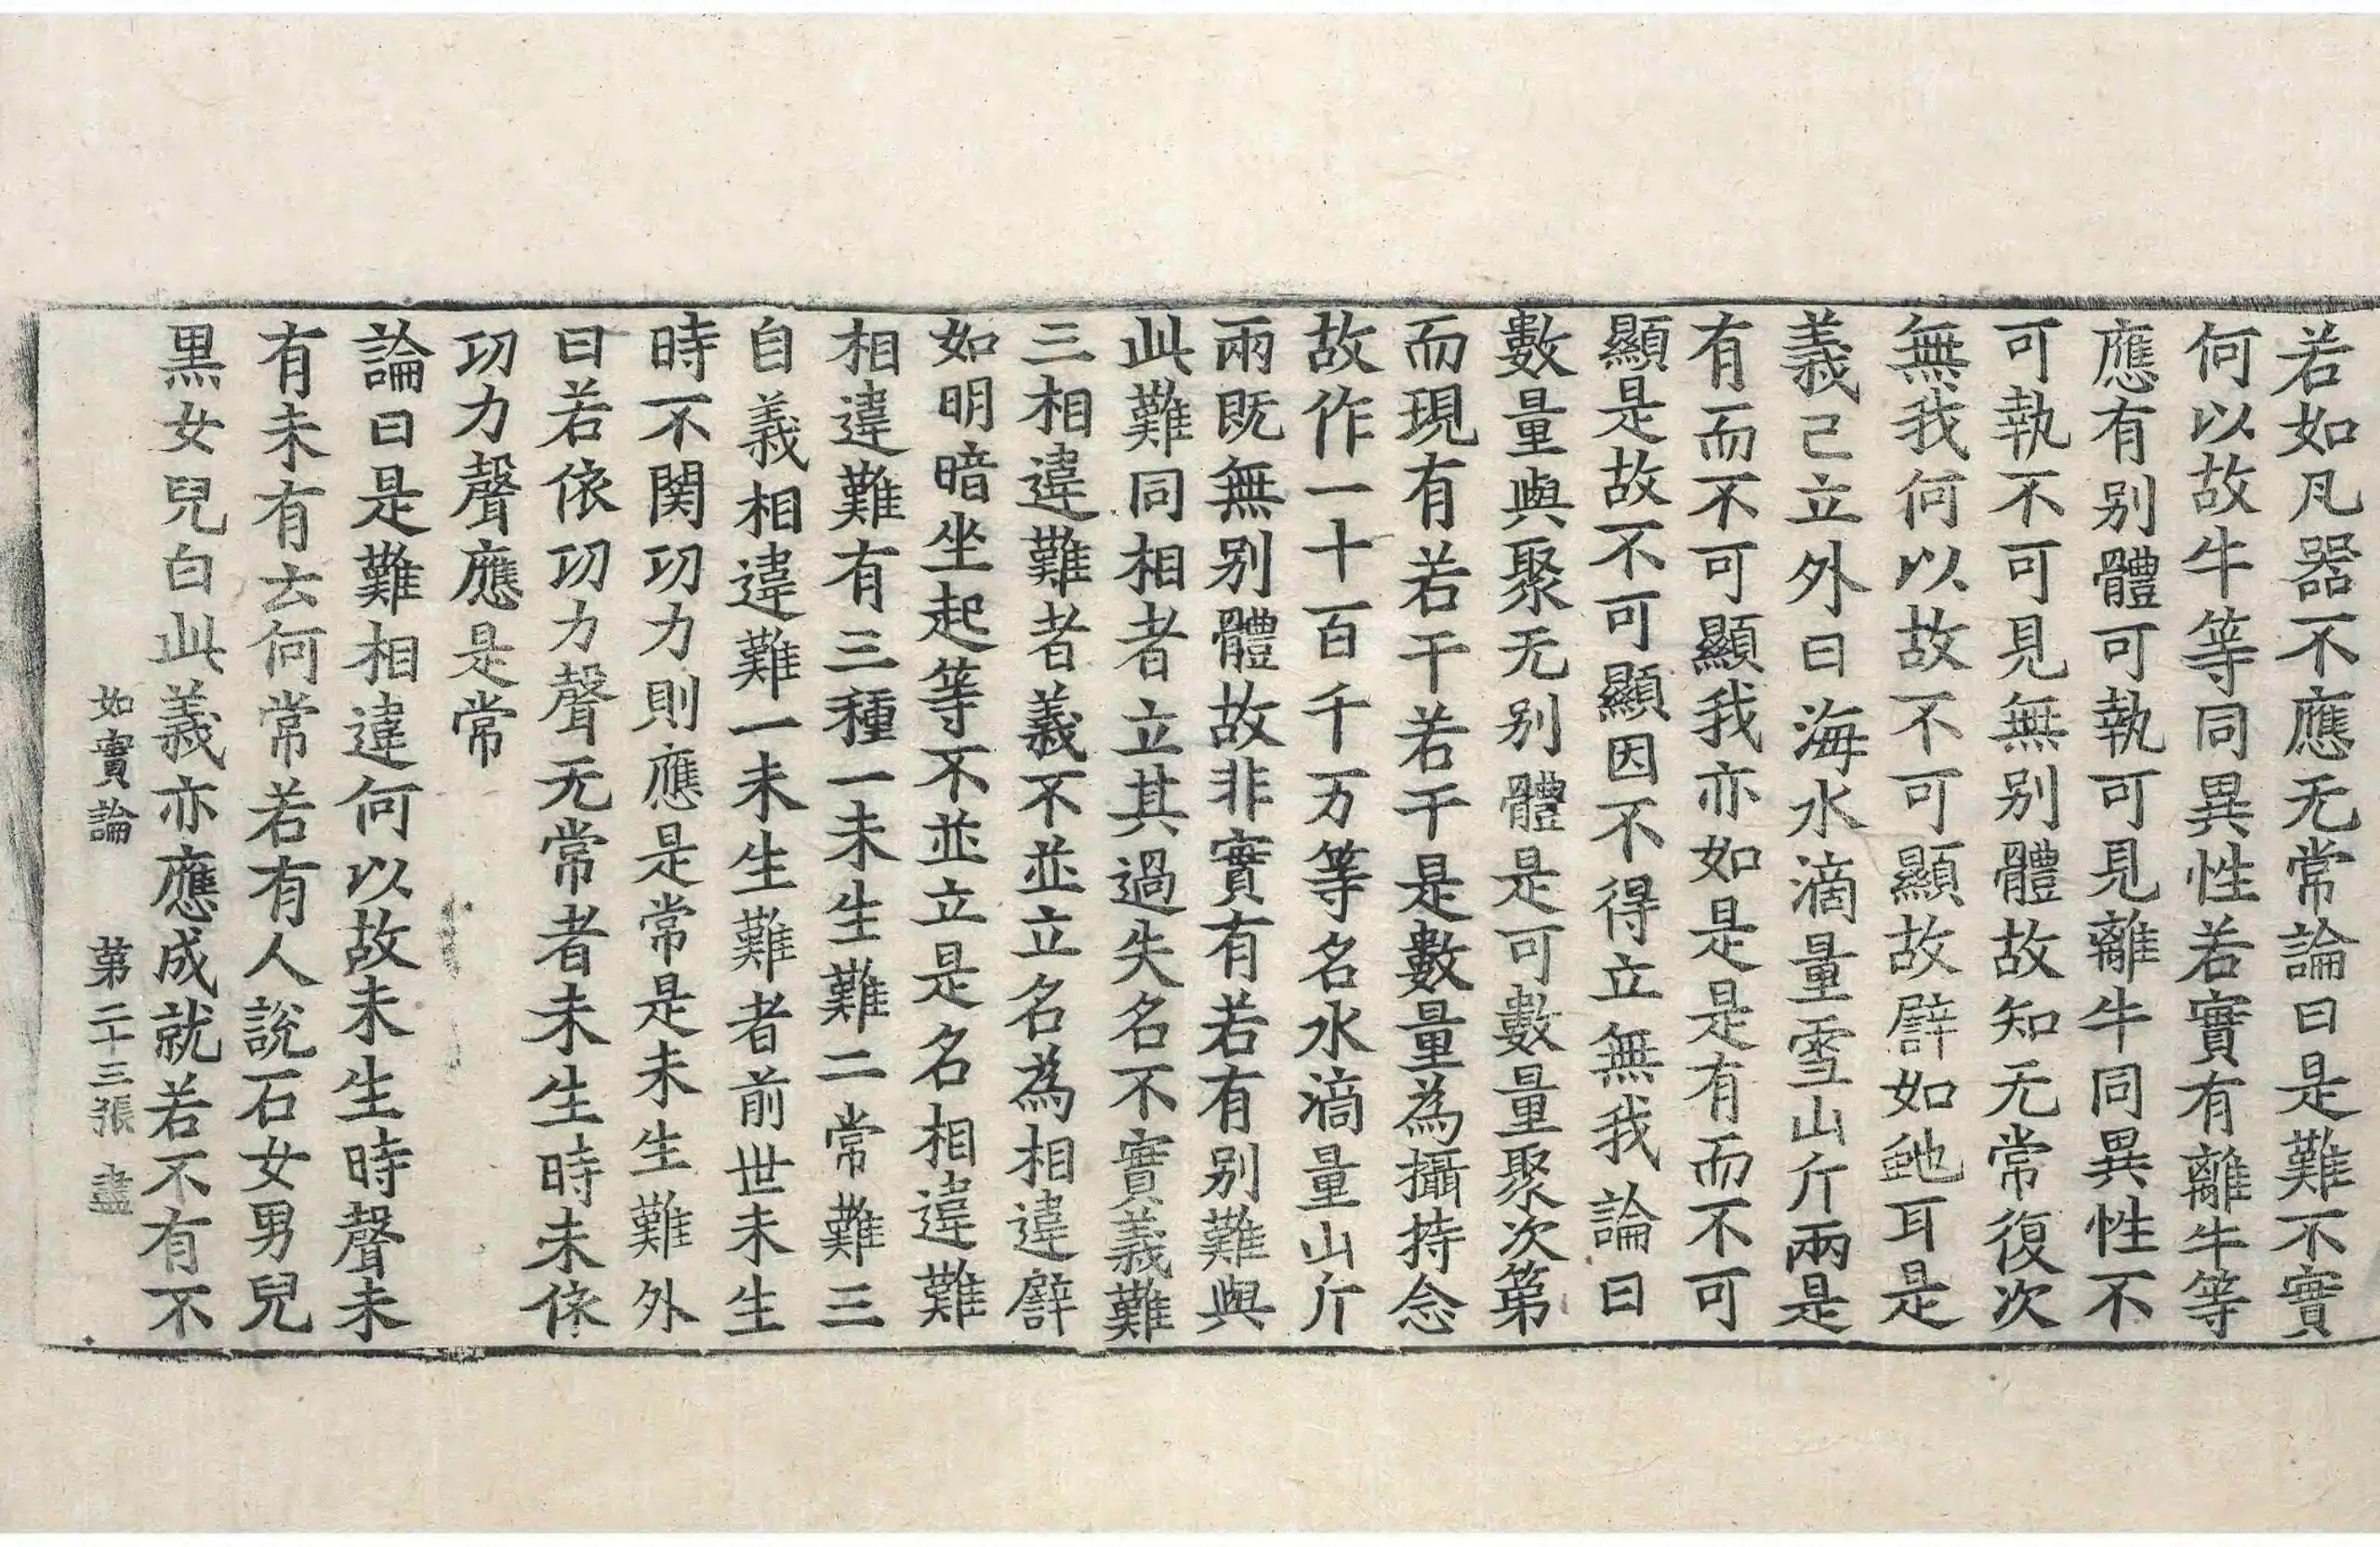 若如凡器不應无常論曰是難不實
何以故牛等同異性若實有離牛等
應有别體可執可見離牛同異性不
可執不可見無别體故知无常復次
無我何以故不可顯故譬如虵耳是
義已立外曰海水滴量雪山斤兩是
有而不可顯我亦如是是有而不可
顯是故不可顯因不得立無我論曰
數量與聚无别體是可數量聚次第
而現有若干若干是數量為攝持念
故作一十百千万等名水滴量山斤
兩既無别體故非實有若有别難與
此難同相者立其過失名不實義難
三相違難者義不並立名為相違譬
如明暗坐起等不並立是名相違難
相違難有三種一未生難二常難三
自義相違難一未生難者前世未生
時不関功力則應是常是未生難外
曰若依功力聲无常者未生時未依
功力聲應是常
論曰是難相違何以故未生時聲未
有未有云何常若有人說石女男兒
黒女兒白此義亦應成就若不有不
如實論 第二十三張 盡